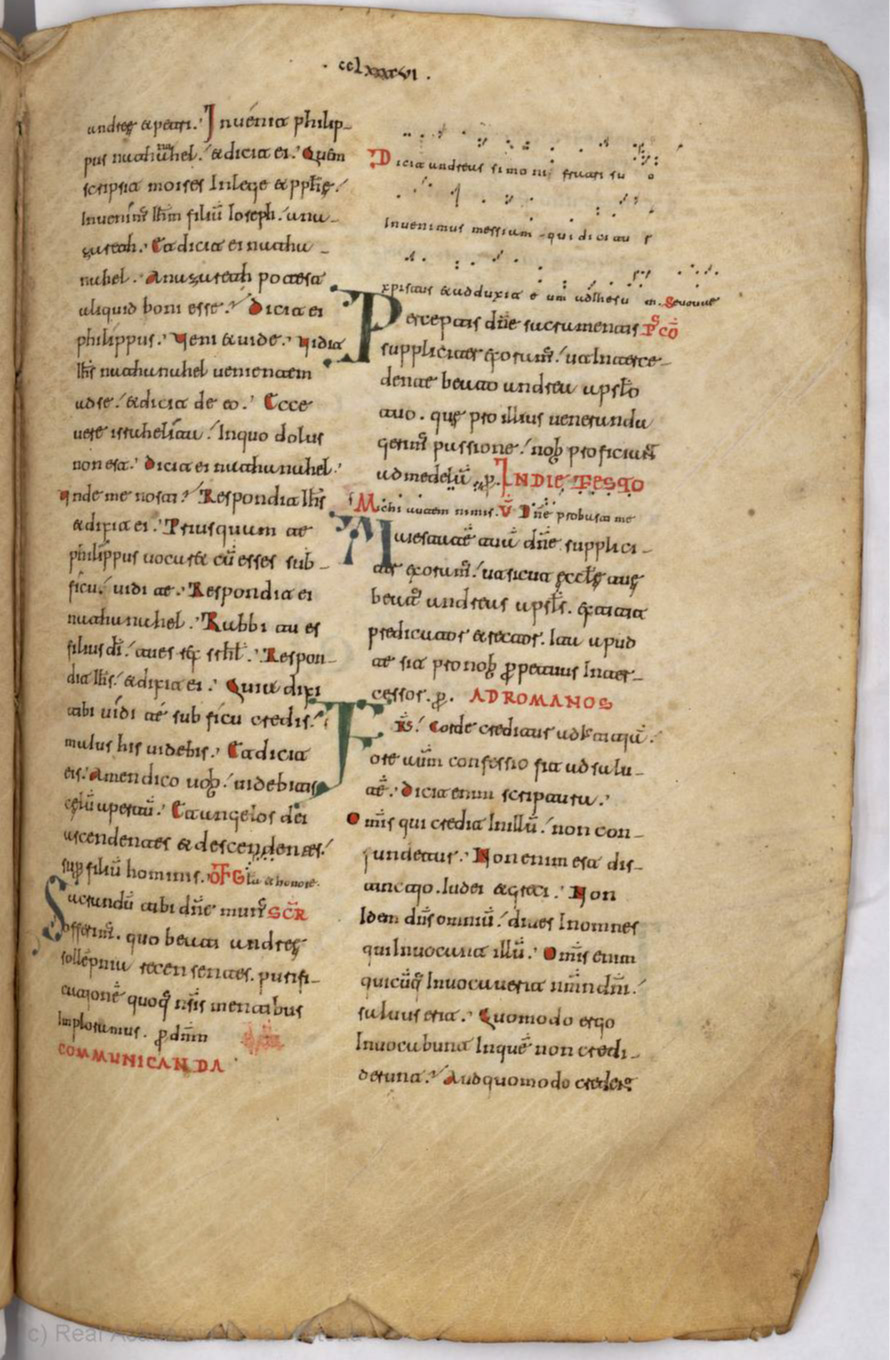 · cclxxxvi ·
andreę & petri. Inuenit philip-
pus nathanahel. & dicit ei. Quem
scripsit moises In lege & pphę̄.
Inuenim̄ ihm̄ filiū Ioseph. a na-
zareth. Et dicit ei natha-
nahel. A nazareth potest
aliquid boni esse. Dicit ei
philippus. Veni & uide. Vidit
ih̄s nathanahel uenientem
ad se. & dicit de eo. Ecce
uere israhelita. In quo dolus
non est. Dicit ei nathanahel.
Vnde me nosti. Respondit ih̄s
& dixit ei. Priusquam te
philippus uocaret cū esses sub
ficu. uidi te. Respondit ei
nathanahel. Rabbi tu es
filius dī. tu es rex isrl̄. Respon-
dit ih̄s. & dixit ei. Quia dixi
tibi uidi te sub ficu credis.
maius his uidebis. Et dicit
eis. Amen dico uob. uidebitis
cęlū apertū. Et angelos dei
ascendentes & descendentes
sup filiū hominis. OFF Gla & honore.
Sacrandū tibi dn̄e mun̄ SCR
offerim̄. quo beati andreę
sollēpnia recensentes. purifi-
cationē quoq nr̄is mentibus
Imploramus. p dn̄m
COMMUNICANDA
Dicit andreas simoni fratri suo
Inuenimus messiam qui dicitur
xpistus & adduxit eum ad ihesum. Seuouae
Perceptis dn̄e sacramentis PS CO
suppliciter exoram̄. ut Interce-
dente beato andrea apsto
tuo. quę pro illius ueneranda
gerim̄ passione. nob proficiant
ad medelā. p. IN DIE FESTO
Michi autem nimis. V Dn̄e probasti me
Maiestatē tuā dn̄e supplici-
ter exoram̄. ut sicut ęcclę tuę
beat andreas apstls. extitit
predicator & rector. Ita apud
te sit pro nob ppetuus Inter-
cessor. p. AD ROMANOS
FRS. Corde creditur ad Iustitiā.
Ore autm confessio fit ad salu-
tē. Dicit enim scriptura.
Omīs qui credit In illū. non con-
fundetur. Non enim est dis-
tinctio. Iudei & greci. Non
Idem dn̄s omniū. diues In omnes
qui Inuocant illū. Omīs enim
quicūq Inuocauerit nm̄n dn̄i.
saluus erit. Quomodo ergo
Inuocabunt In quē non credi-
derunt. Aut quomodo credent
c) Real Academia de la Historia